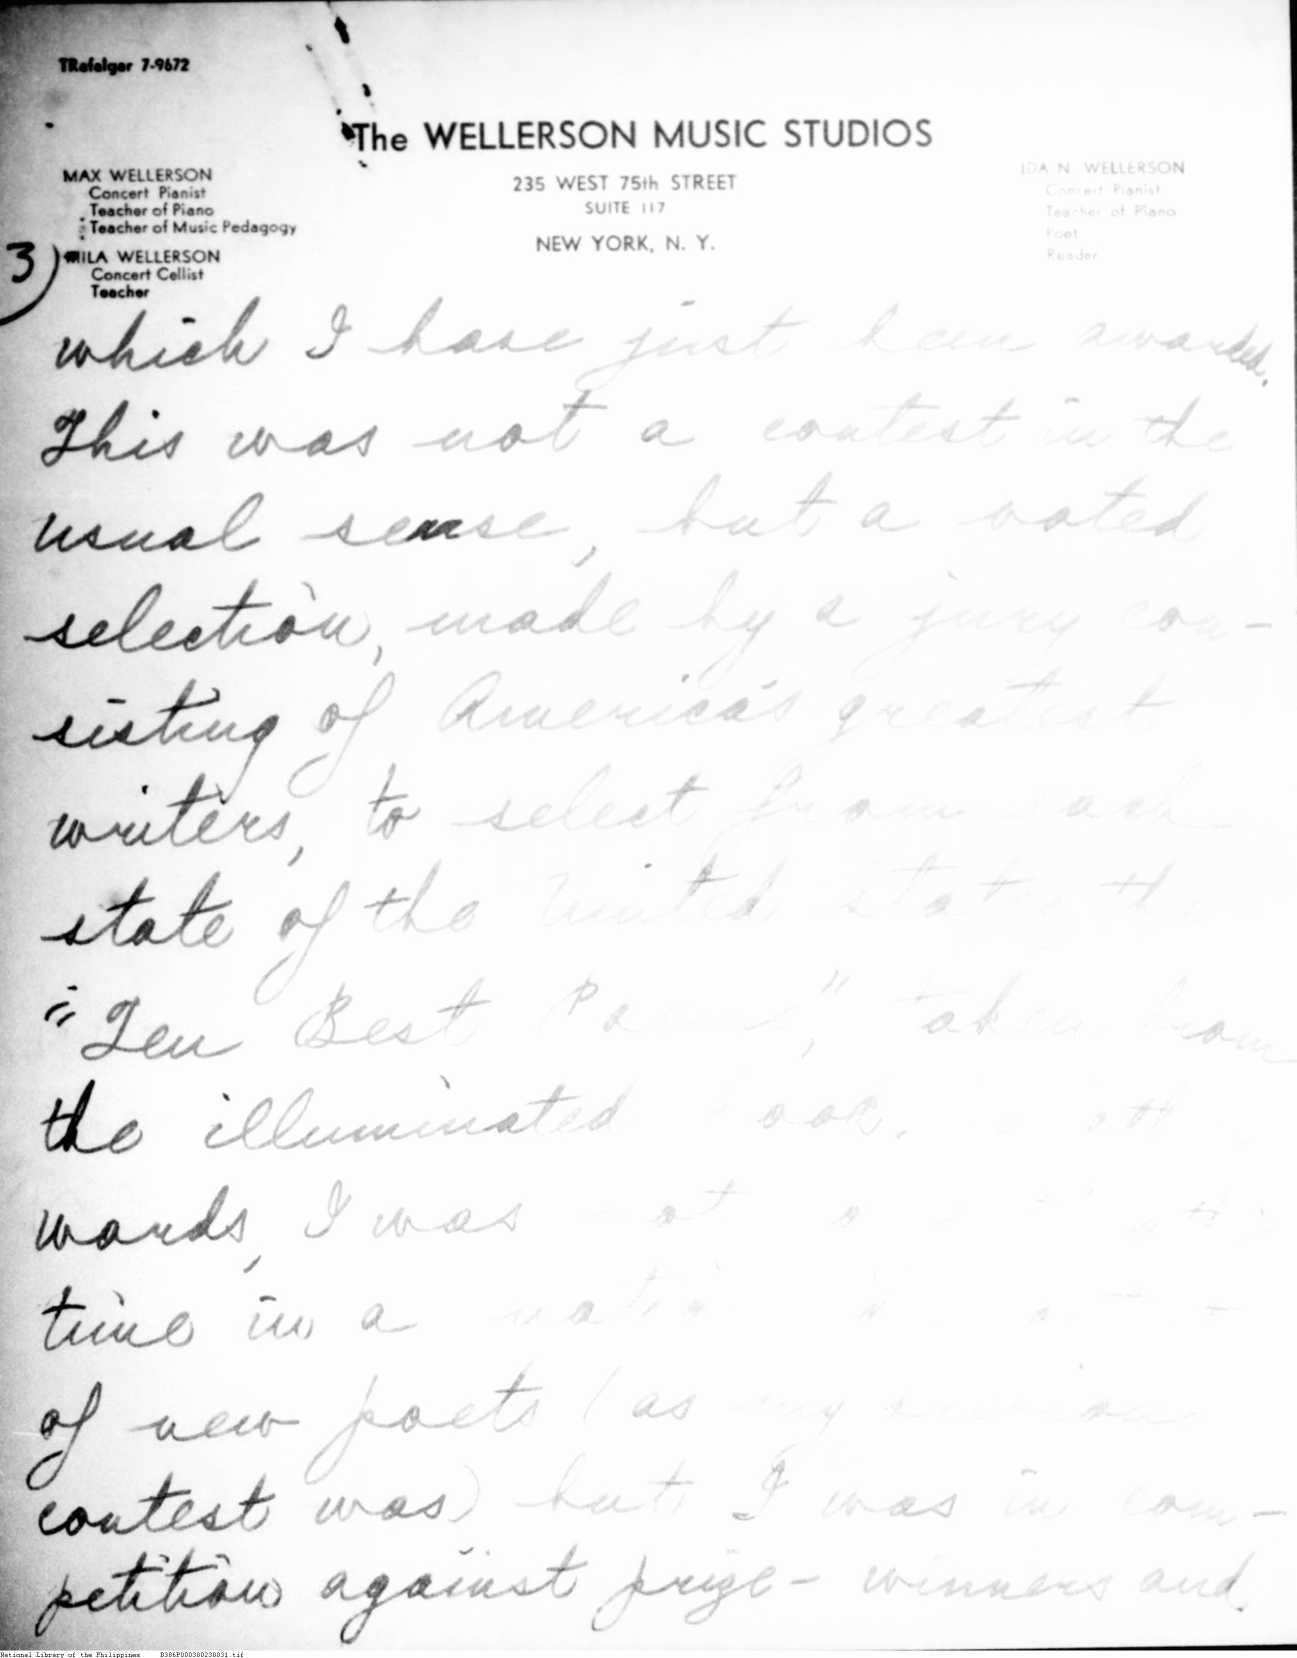 TRafalgar 7-9672
The WELLERSON MUSIC STUDIOS
235 WEST 75th STREET
SUITE 117
NEW YORK, N. Y.
MAX WELLERSON
Concert Pianist
Teacher of Piano
Teacher of Music Pedagogy
MILA WELLERSON
Concert Cellist
Teacher
IDA N. WELLERSON
Concert Pianist
Teacher of Piano
Poet
Reader
3)
which I have just been awarded.
This was not a contest in the
usual sense, but a voted
selection, made by a jury con-
sisting of America's greatest
writers, to select from each
state of the United States the
"Ten Best Poems," taken from
the illuminated book.
words, I was not
time in a
of new poets (as my previous
contest was) but I was in com-
petition against prize-winners and
National Library of the Philippines B386P000300230031.tif